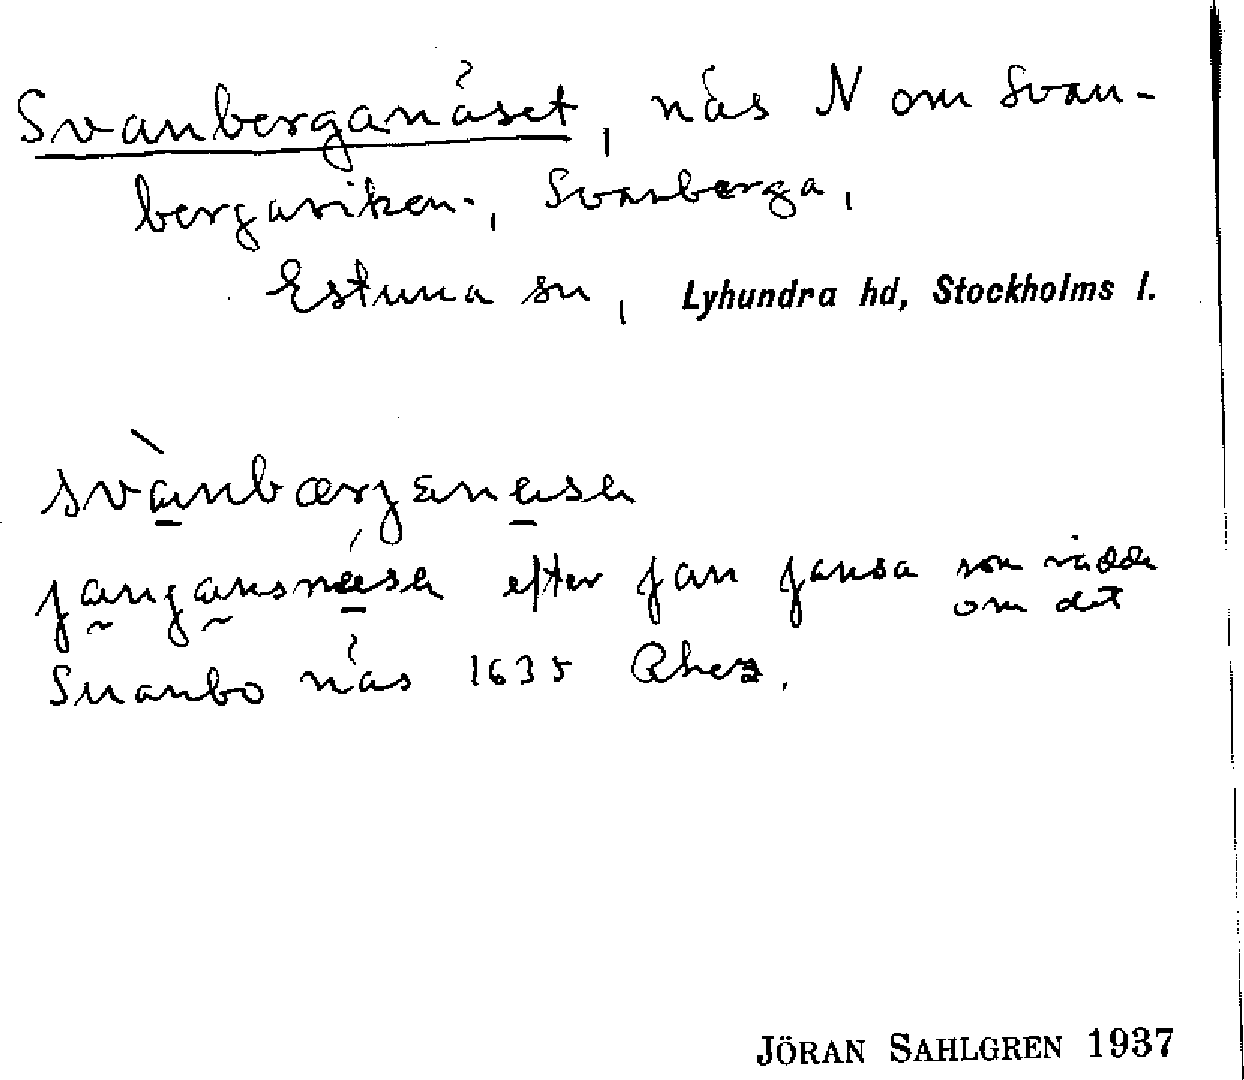 Svanberganäset, näs N om Svan-
bergaviken, Svanberga,
Estuna sn, Lyhundra hd, Stockholms l.
svànbærganæsa
janjansnæsa efter Jan Jansa som rådde
om det
Suanbo näs 1635 Rhez.
JÖRAN SAHLGREN 1937